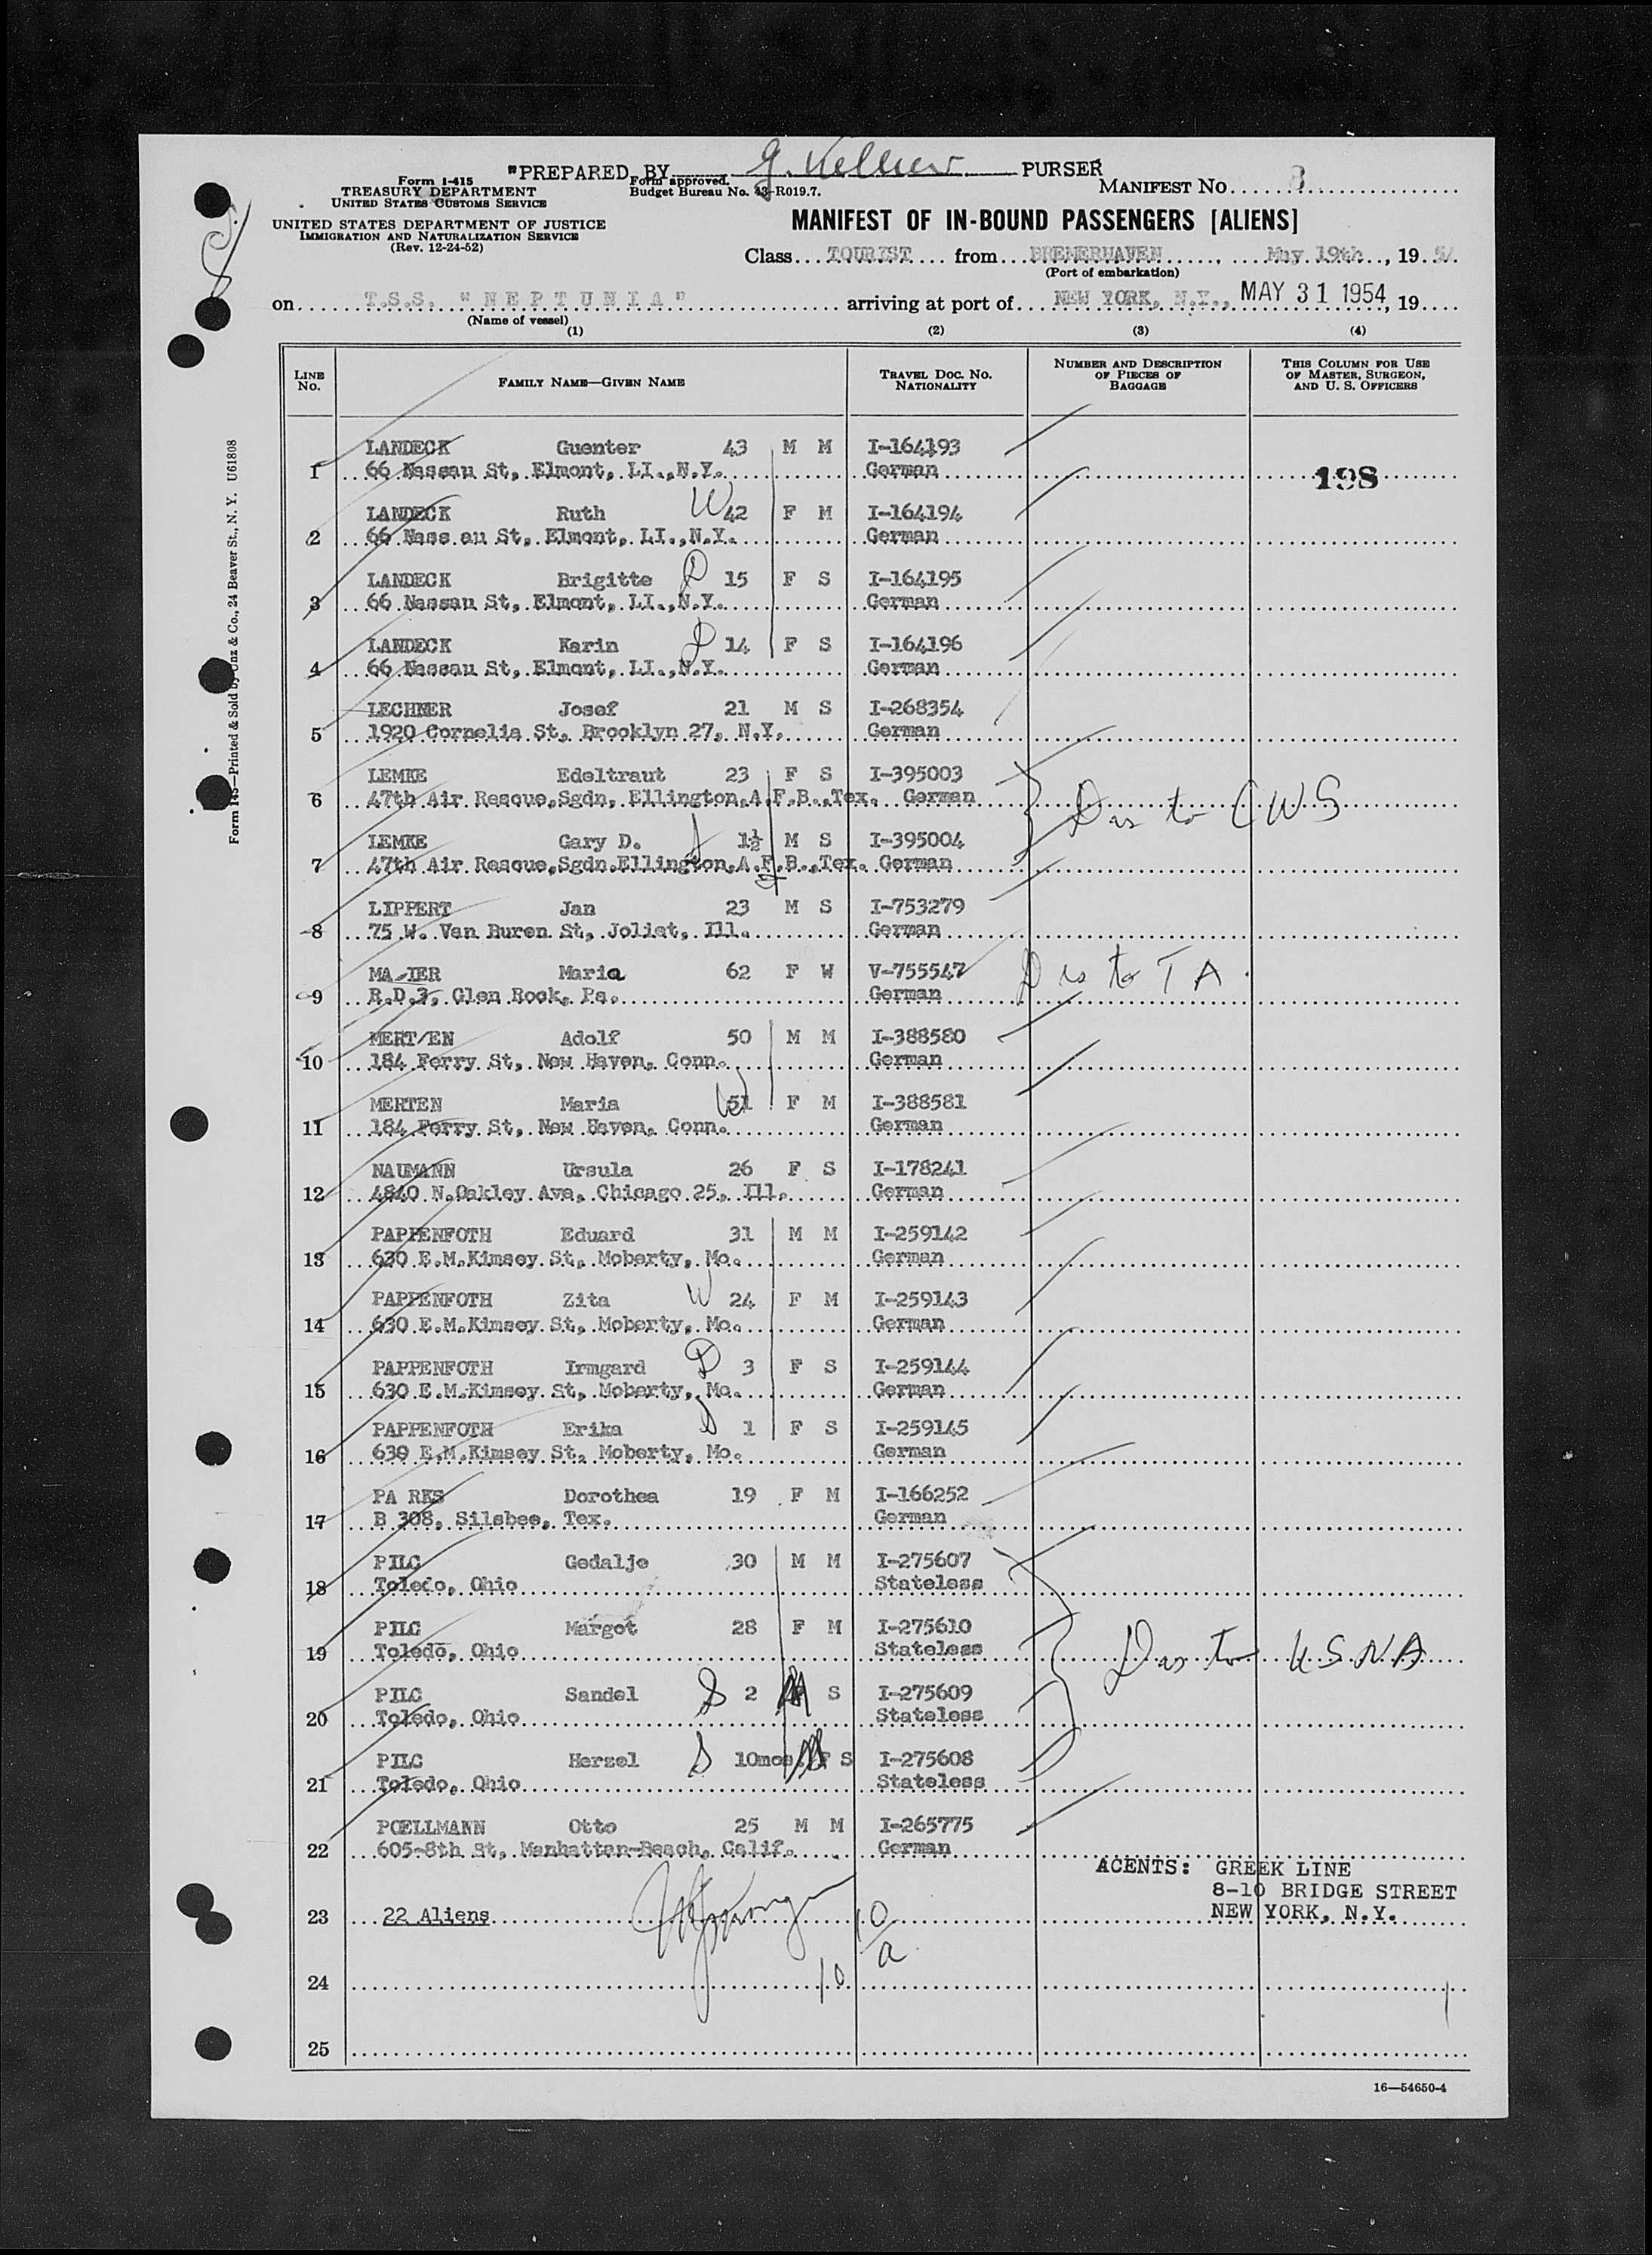 "PREPARED BY G. Kellner PURSER
Form I-415
TREASURY DEPARTMENT
UNITED STATES CUSTOMS SERVICE
Form approved.
Budget Bureau No. 43-R019.7.
MANIFEST No. 8
UNITED STATES DEPARTMENT OF JUSTICE
IMMIGRATION AND NATURALIZATION SERVICE
(Rev. 12-24-52)
MANIFEST OF IN-BOUND PASSENGERS [ALIENS]
Class TOURIST from BREMERHAVEN, May 19th, 1954
(Port of embarkation)
on T.S.S. "NEPTUNIA" arriving at port of NEW YORK, N.Y., MAY 31 1954, 19
(Name of vessel)
(1) (2) (3) (4)
LINE No. FAMILY NAME—GIVEN NAME TRAVEL DOC. NO. NATIONALITY NUMBER AND DESCRIPTION OF PIECES OF BAGGAGE THIS COLUMN FOR USE OF MASTER, SURGEON, AND U. S. OFFICERS
LANDECK Guenter 43 M M I-164193
1 66 Nassau St, Elmont, LI.,N.Y. German 198
LANDECK Ruth W 42 F M I-164194
2 66 Nass au St, Elmont, LI.,N.Y. German
LANDECK Brigitte D 15 F S I-164195
3 66 Nassau St, Elmont, LI.,N.Y. German
LANDECK Karin D 14 F S I-164196
4 66 Nassau St, Elmont, LI.,N.Y. German
LECHNER Josef 21 M S I-268354
5 1920 Cornelia St, Brooklyn 27, N.Y. German
LEMKE Edeltraut 23 F S I-395003
6 47th Air Rescue,Sgdn, Ellington,A.F.B.,Tex. German Dis to CWS
LEMKE Gary D. S 1½ M S I-395004
7 47th Air Rescue,Sgdn.Ellington,A.F.B.,Tex. German
LIPPERT Jan 23 M S I-753279
8 75 W. Van Buren St, Joliet, Ill. German
MA-IER Maria 62 F W V-755547 Dis to TA
9 R.D.3, Glen Rock, Pa. German
MERT/EN Adolf 50 M M I-388580
10 184 Ferry St, New Haven, Conn. German
MERTEN Maria W 51 F M I-388581
11 184 Ferry St, New Haven, Conn. German
NAUMANN Ursula 26 F S I-178241
12 4840 N.Oakley Ave, Chicago 25, Ill. German
PAPPENFOTH Eduard 31 M M I-259142
13 630 E.M.Kimsey St, Moberty, Mo. German
PAPPENFOTH Zita W 24 F M I-259143
14 630 E.M.Kimsey St, Moberty, Mo. German
PAPPENFOTH Irmgard D 3 F S I-259144
15 630 E.M.Kimsey St, Moberty, Mo. German
PAPPENFOTH Erika D 1 F S I-259145
16 630 E.M.Kimsey St, Moberty, Mo. German
PA RKS Dorothea 19 F M I-166252
17 B 308, Silsbee, Tex. German
PILC Gedalje 30 M M I-275607
18 Toledo, Ohio Stateless
PILC Margot 28 F M I-275610
19 Toledo, Ohio Stateless Dis to USNA
PILC Sandel S 2 M S I-275609
20 Toledo, Ohio Stateless
PILC Herzel S 10mos. M F S I-275608
21 Toledo, Ohio Stateless
POELLMANN Otto 25 M M I-265775
22 605-8th St, Manhattan-Beach, Calif. German
AGENTS: GREEK LINE
8-10 BRIDGE STREET
23 22 Aliens NEW YORK, N.Y.
10/a
24 10
25
16—54650-4
Form I-415—Printed & Sold by Unz & Co., 24 Beaver St., N. Y. U61808